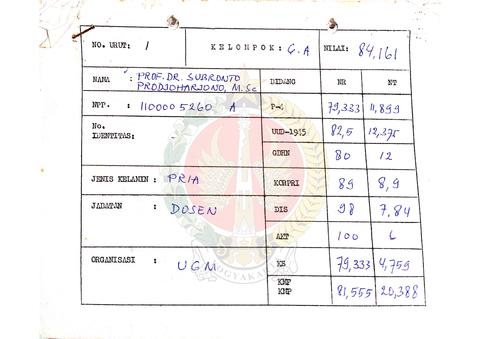 NO. URUT: / KELOMPOK: G.A NILAI: 84,161
NAMA : PROF. DR. SUBRONTO
PRODJOHARJONO, M.Sc
BIDANG NR NT
NPP. : 110000 5260 A P-4 79,333 11,899
No.
IDENTITAS: - UUD-1945 82,5 12,375
GBHN 80 12
JENIS KELAMIN : PRIA KORPRI 89 8,9
JABATAN : DOSEN DIS 98 7,84
AKT 100 6
ORGANISASI : UGM KB 79,333 4,759
KMP
KMP 81,555 20,388
YOGYAKARTA